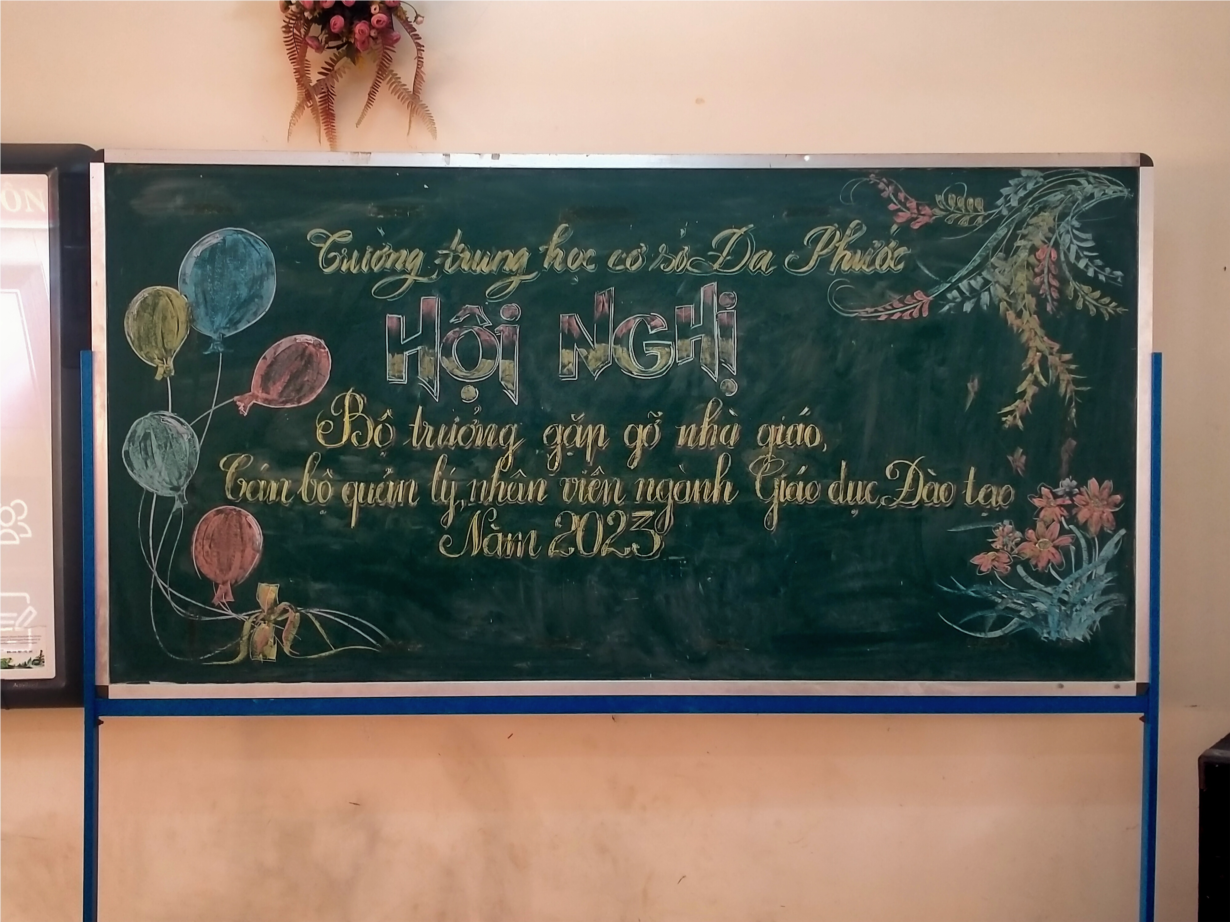 Trường trung học cơ sở Đa Phước
HỘI NGHỊ
Bộ trưởng gặp gỡ nhà giáo,
Cán bộ quản lý, nhân viên ngành Giáo dục, Đào tạo
Năm 2023